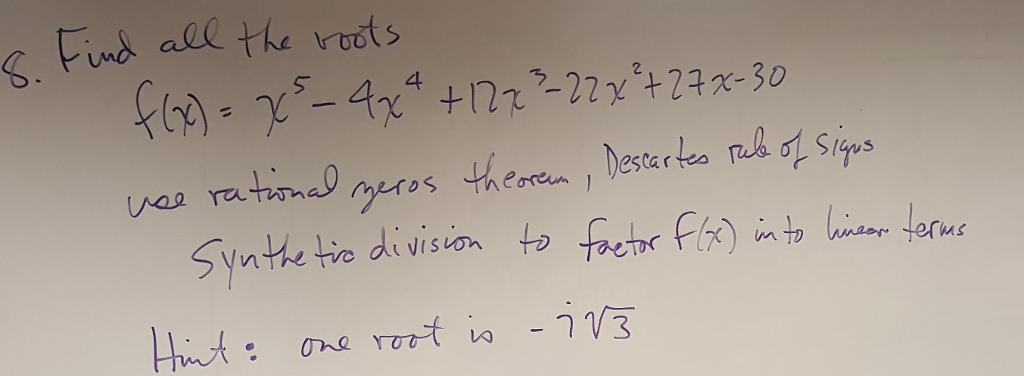 8. Find all the roots
f(x) = x⁵ - 4x⁴ + 12x³ - 22x² + 27x - 30
use rational zeros theorem, Descartes rule of signs
Synthetic division to factor f(x) into linear terms
Hint: one root is - i√3